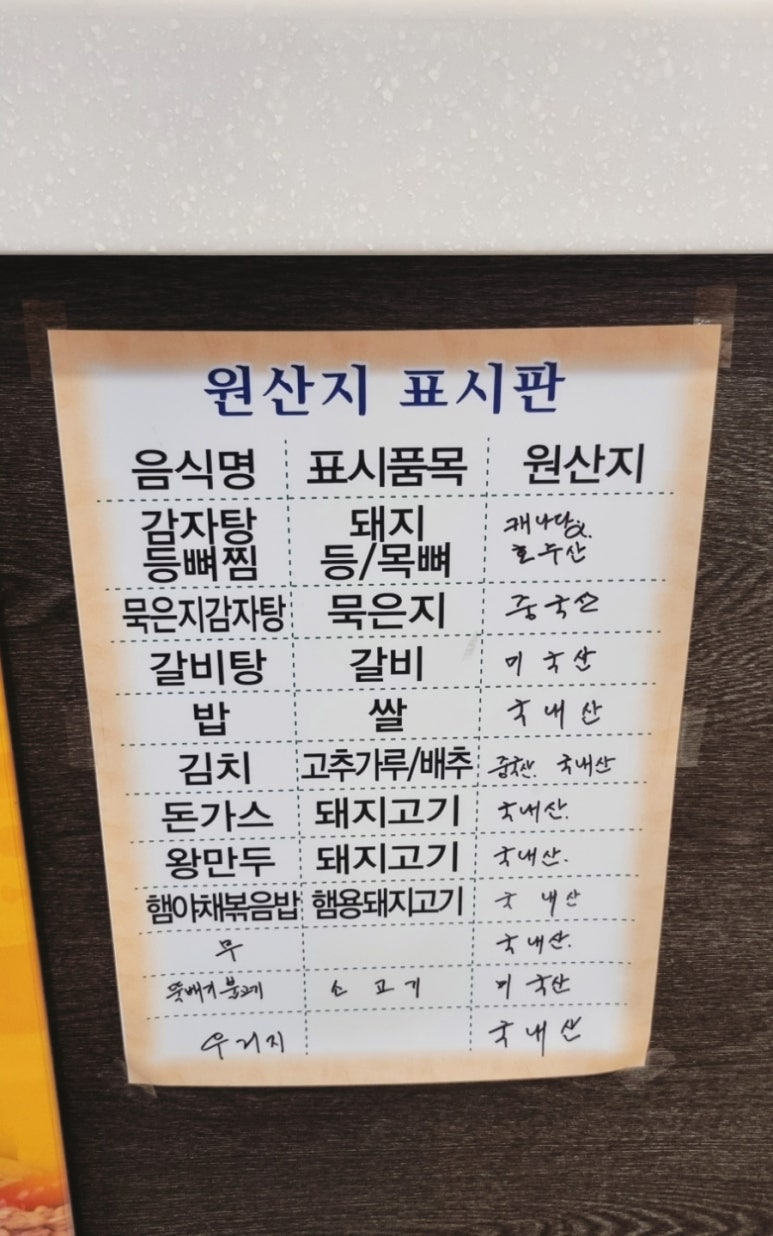 원산지 표시판
음식명 표시품목 원산지
감자탕 돼지 캐나다산.
등뼈찜 등/목뼈 호주산
묵은지감자탕 묵은지 중국산
갈비탕 갈비 미국산
밥 쌀 국내산
김치 고추가루/배추 중국산. 국내산
돈가스 돼지고기 국내산.
왕만두 돼지고기 국내산.
햄야채볶음밥 햄용돼지고기 국내산
무 국내산.
뚝배기불고기 소고기 미국산
우거지 국내산